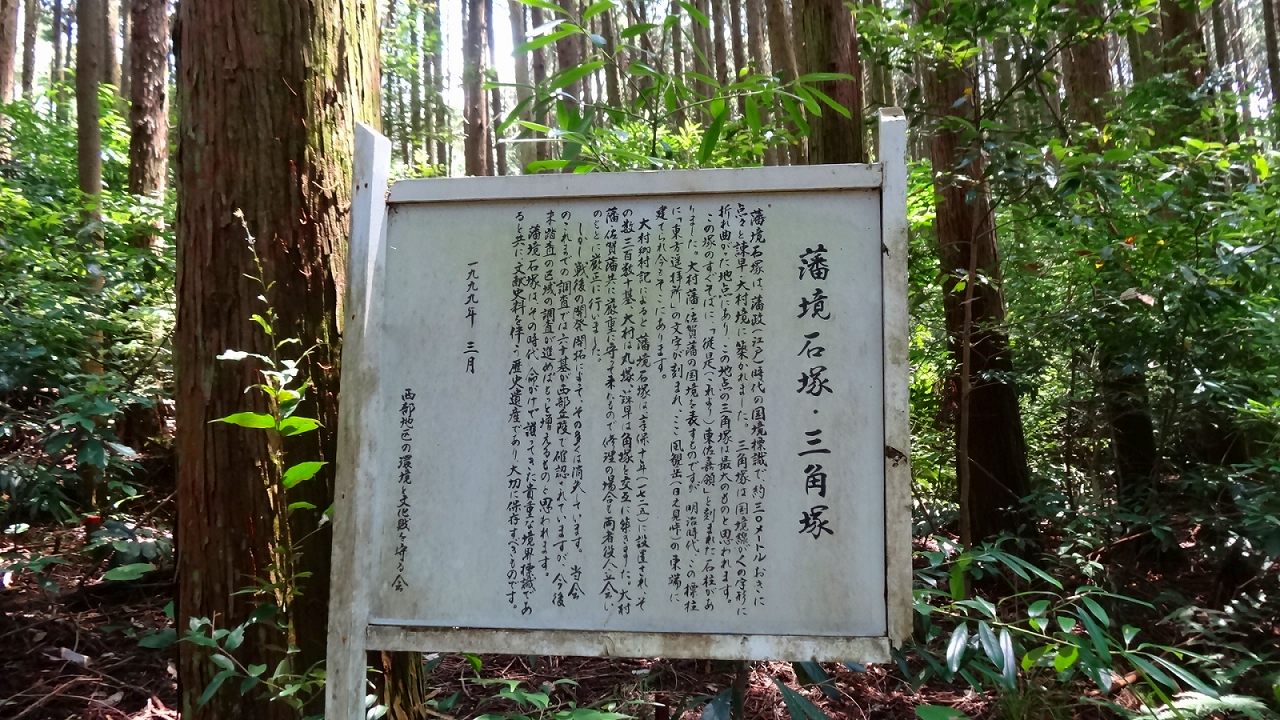 藩境石塚・三角塚
藩境石塚は、藩政(江戸)時代の国境標識で、約三〇メートルおきに
点々と諫早・大村境に築かれました。三角塚は国境線がくの字形に
折れ曲がった地点にあり、この地点の三角塚は最大のものと思われます。
この塚のすぐそばに、「従是(これより)東佐嘉領」と刻まれた石柱があ
りました。大村藩・佐賀藩の国境を表すものですが、明治時代、この標柱
に「東方遥拝所」の文字が刻まれ、ここ風観岳(日之見峠)の東端に
建てられ今もそこにあります。
大村郷村記によると藩境石塚は享保十年(一七二五)に設置され、そ
の数三百数十基、大村は丸塚、諫早は角塚と交互に築きました。大村
藩佐賀藩共に厳重に守って来たもので修理の場合も両者役人立会い
のもとに厳正に行いました。
しかし、戦後の開発開拓によって、その多くは消失しています。当会
のこれまでの調査では六十基が西部丘陵で確認されていますが、今後
未踏査の区域の調査が進めばもっと増えるものと思われます。
藩境石塚は、その時代、命がけで護ってきた貴重な境界標識であ
ると共に、文献史料と伴う歴史遺産であり大切に保存すべきものです。
一九九九年 三月
西部地区の環境と文化財を守る会